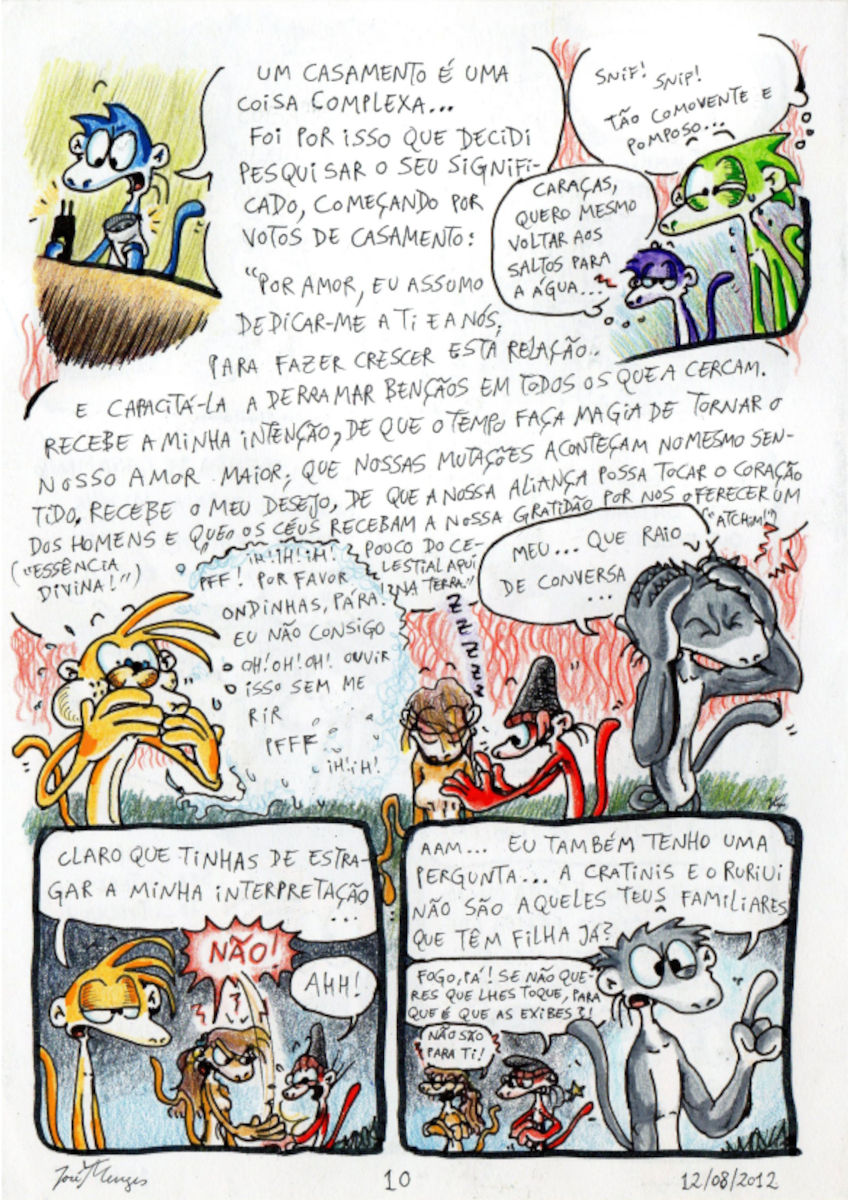 UM CASAMENTO É UMA
COISA COMPLEXA...
FOI POR ISSO QUE DECIDI
PESQUISAR O SEU SIGNIFI-
CADO, COMEÇANDO POR
VOTOS DE CASAMENTO:
"POR AMOR, EU ASSUMO
DEDICAR-ME A TI E A NÓS,
PARA FAZER CRESCER ESTA RELAÇÃO..
E CAPACITÁ-LA A DERRAMAR BENÇÃOS EM TODOS OS QUE A CERCAM.
RECEBE A MINHA INTENÇÃO, DE QUE O TEMPO FAÇA MAGIA DE TORNAR O
NOSSO AMOR MAIOR, QUE NOSSAS MUTAÇÕES ACONTEÇAM NO MESMO SEN-
TIDO, RECEBE O MEU DESEJO, DE QUE A NOSSA ALIANÇA POSSA TOCAR O CORAÇÃO
DOS HOMENS E QUE OS CÉUS RECEBAM A NOSSA GRATIDÃO POR NOS OFERECER UM
POUCO DO CE-
LESTIAL AQUI
NA TERRA."
SNIF! SNIP!
TÃO COMOVENTE E
POMPOSO...
CARAÇAS,
QUERO MESMO
VOLTAR AOS
SALTOS PARA
A ÁGUA...
("ESSÊNCIA
DIVINA!")
IH!IH!IH!
PFF! POR FAVOR
ONDINHAS, PÁRA!
EU NÃO CONSIGO
OH!OH!OH! OUVIR
ISSO SEM ME
RIR
PFFF
IH!IH!
ZZZZZZ
("ATCHIM!")
MEU... QUE RAIO
DE CONVERSA
...
CLARO QUE TINHAS DE ESTRA-
GAR A MINHA INTERPRETAÇÃO
...
NÃO!
AHH!
AAM... EU TAMBÉM TENHO UMA
PERGUNTA... A CRATINIS E O RURIUI
NÃO SÃO AQUELES TEUS FAMILIARES
QUE TÊM FILHA JÁ?
FOGO, PÁ! SE NÃO QUE-
RES QUE LHES TOQUE, PARA
QUE É QUE AS EXIBES?!
NÃO SÃO
PARA TI!
José Menges
10
12/08/2012